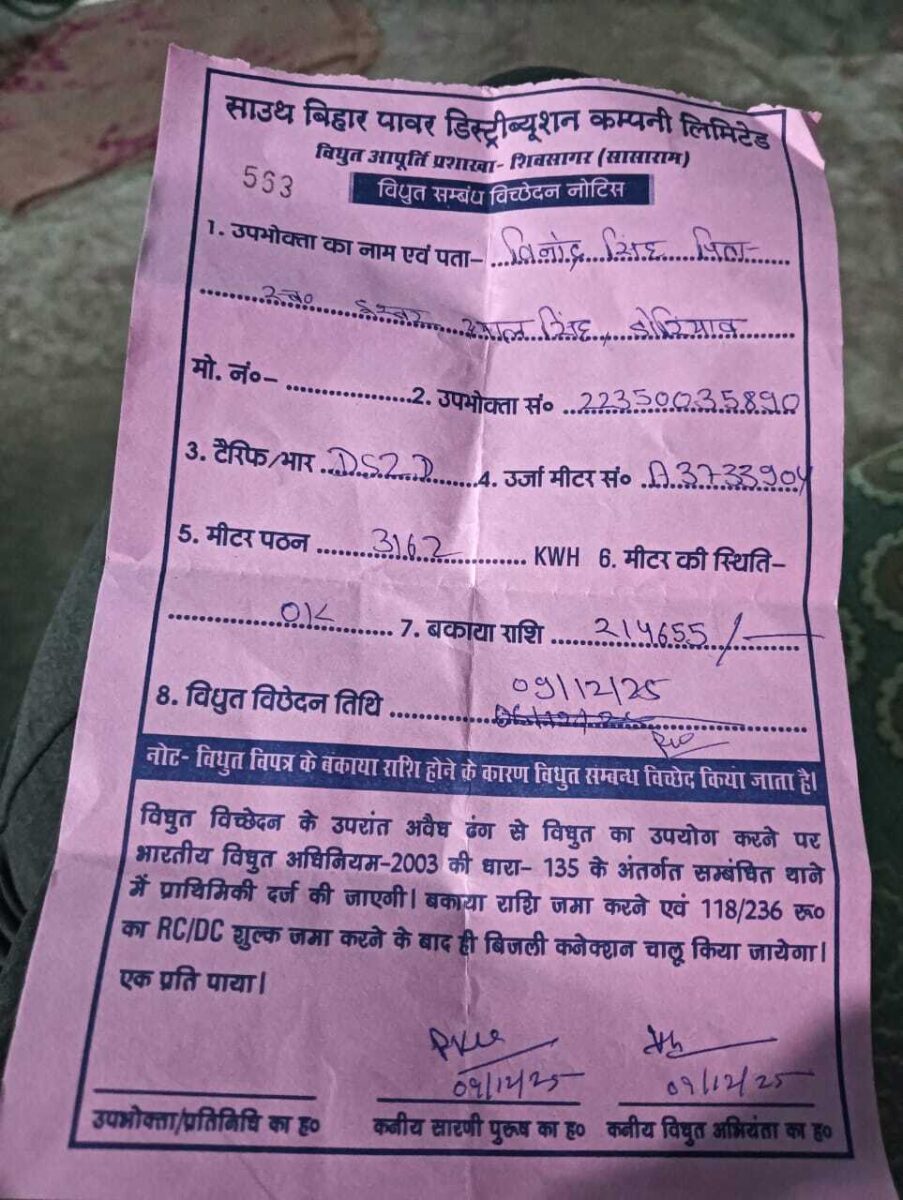 साउथ बिहार पावर डिस्ट्रीब्यूशन कम्पनी लिमिटेड
विधुत आपूर्ति प्रशाखा- शिवसागर (सासाराम)
563
विधुत सम्बंध विच्छेदन नोटिस
1. उपभोक्ता का नाम एवं पता- विनोद सिंह पिता-
स्व० ईश्वर दयाल सिंह,
मो. नं०- 2. उपभोक्ता सं० 22350035890
3. टैरिफ/भार DS2D 4. उर्जा मीटर सं० A3733904
5. मीटर पठन 3162 KWH 6. मीटर की स्थिति-
OK 7. बकाया राशि 214655/-
8. विधुत विछेदन तिथि 09/12/25
नोट- विधुत विपत्र के बकाया राशि होने के कारण विधुत सम्बन्ध विच्छेद किया जाता है।
विधुत विच्छेदन के उपरांत अवैध ढंग से विधुत का उपयोग करने पर
भारतीय विधुत अधिनियम-2003 की धारा- 135 के अंतर्गत सम्बंधित थाने
में प्राथिमिकी दर्ज की जाएगी। बकाया राशि जमा करने एवं 118/236 रू०
का RC/DC शुल्क जमा करने के बाद ही बिजली कनेक्शन चालू किया जायेगा।
एक प्रति पाया।
09/12/25 09/12/25
उपभोक्ता/प्रतिनिधि का ह० कनीय सारणी पुरूष का ह० कनीय विधुत अभियंता का ह०